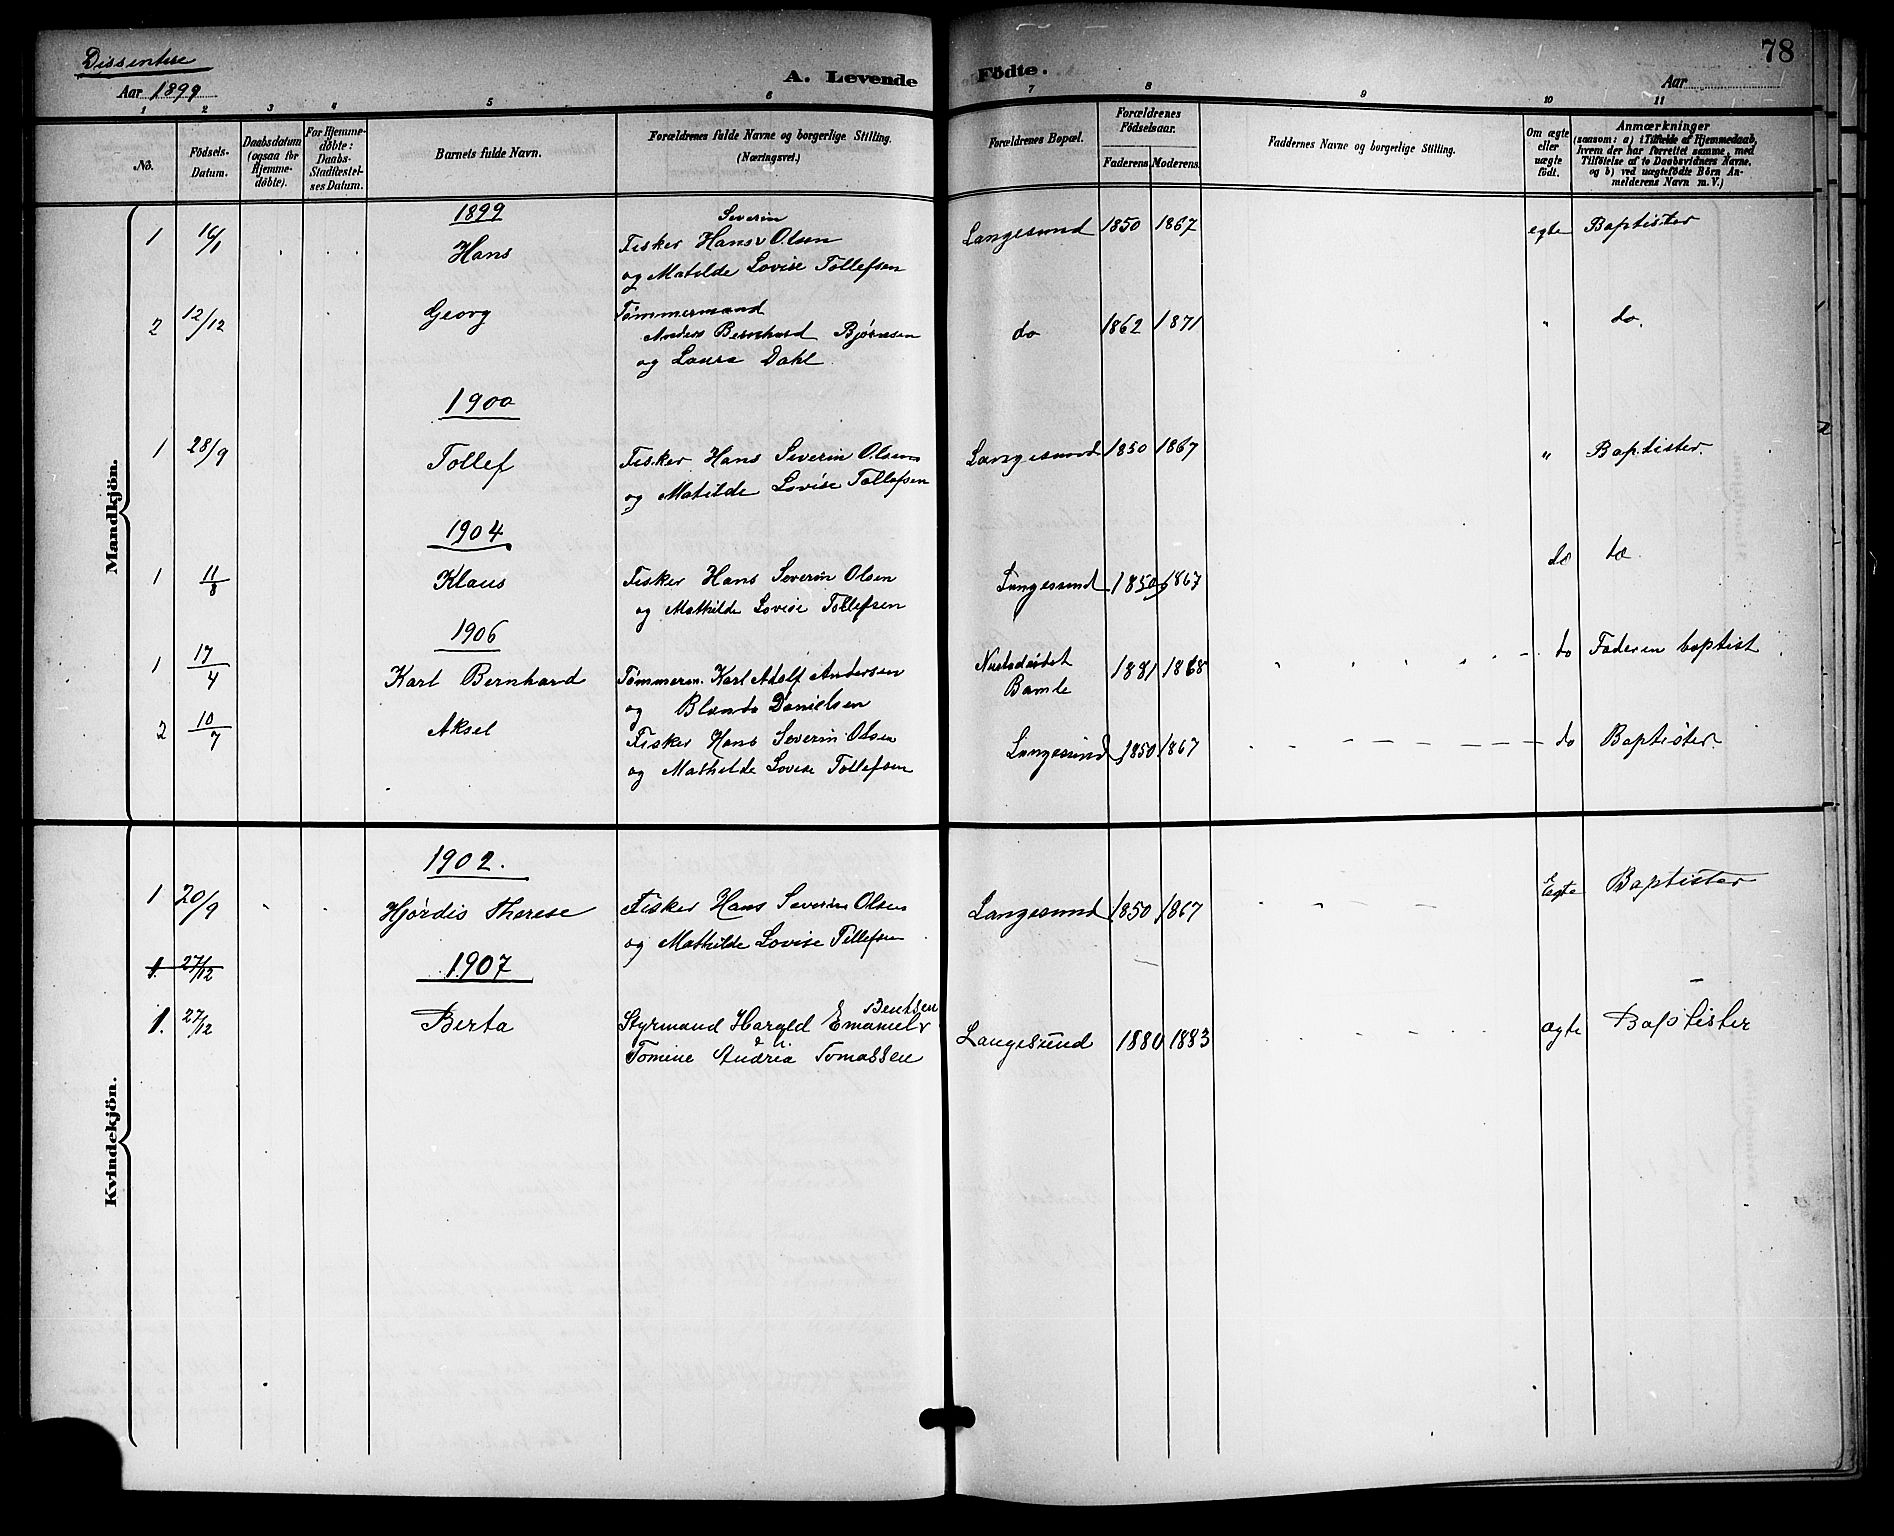 Dissentere
78
A. Levende Födte.
Aar 1899
Aar
1 2 3 4 5 6 7 8 9 10 11
No.
Födsels-Datum.
Daabsdatum (ogsaa for Hjemme-døbte).
For Hjemme-døbte: Daabs-Stadfæstelses Datum.
Barnets fulde Navn.
Forældrenes fulde Navne og borgerlige Stilling.
(Næringsvei.)
Forældrenes Bopæl.
Forældrenes Födselsaar.
Faderens. Moderens.
Faddernes Navne og borgerlige Stilling.
Om ægte eller uægte født.
Anmærkninger
(saasom: a) i Tilfælde af Hjemmedaab, hvem der har forrettet samme, med Tilføielse af to Daabsvidners Navne, og b) ved uægtefødte Børn Anmelderens Navn m. V.)
Mandkjön.
1899
Severin
1 16/1 Hans Fisker Hans Olsen Langesund 1850 1867 egte Baptister
og Matilde Lovise Tollefsen
2 12/12 Georg Tömmermand
Anders Bernhard Bjørnsen do 1862 1871 " do.
og Laura Dahl.
1900
1 28/9 Tollef Fisker Hans Severin Olsen Langesund 1850 1867 " Baptister.
og Matilde Lovise Tollefsen
1904
1 11/8 Klaus Fisker Hans Severin Olsen Langesund 1850 1867 do do
og Mathilde Lovise Tollefsen
1906
1 17/4 Karl Bernhard Tömmerm. Karl Adolf Andersen Bamle 1881 1868 do Faderen baptist
og Blanda Danielsen
2 10/7 Aksel Fisker Hans Severin Olsen Langesund 1850 1867 do Baptister
og Mathilde Lovise Tollefsen
Kvindekjön.
1902.
1 20/9 Hjørdis Therese Fisker Hans Severin Olsen Langesund 1850 1867 Egte Baptister
og Mathilde Lovise Tellefsen
1. 27/12 1907
Bentsen
1. 27/12 Berta Styrmand Harald Emanuel Langesund 1880 1883 ægte Baptister
Tomine Andrea Tomassen